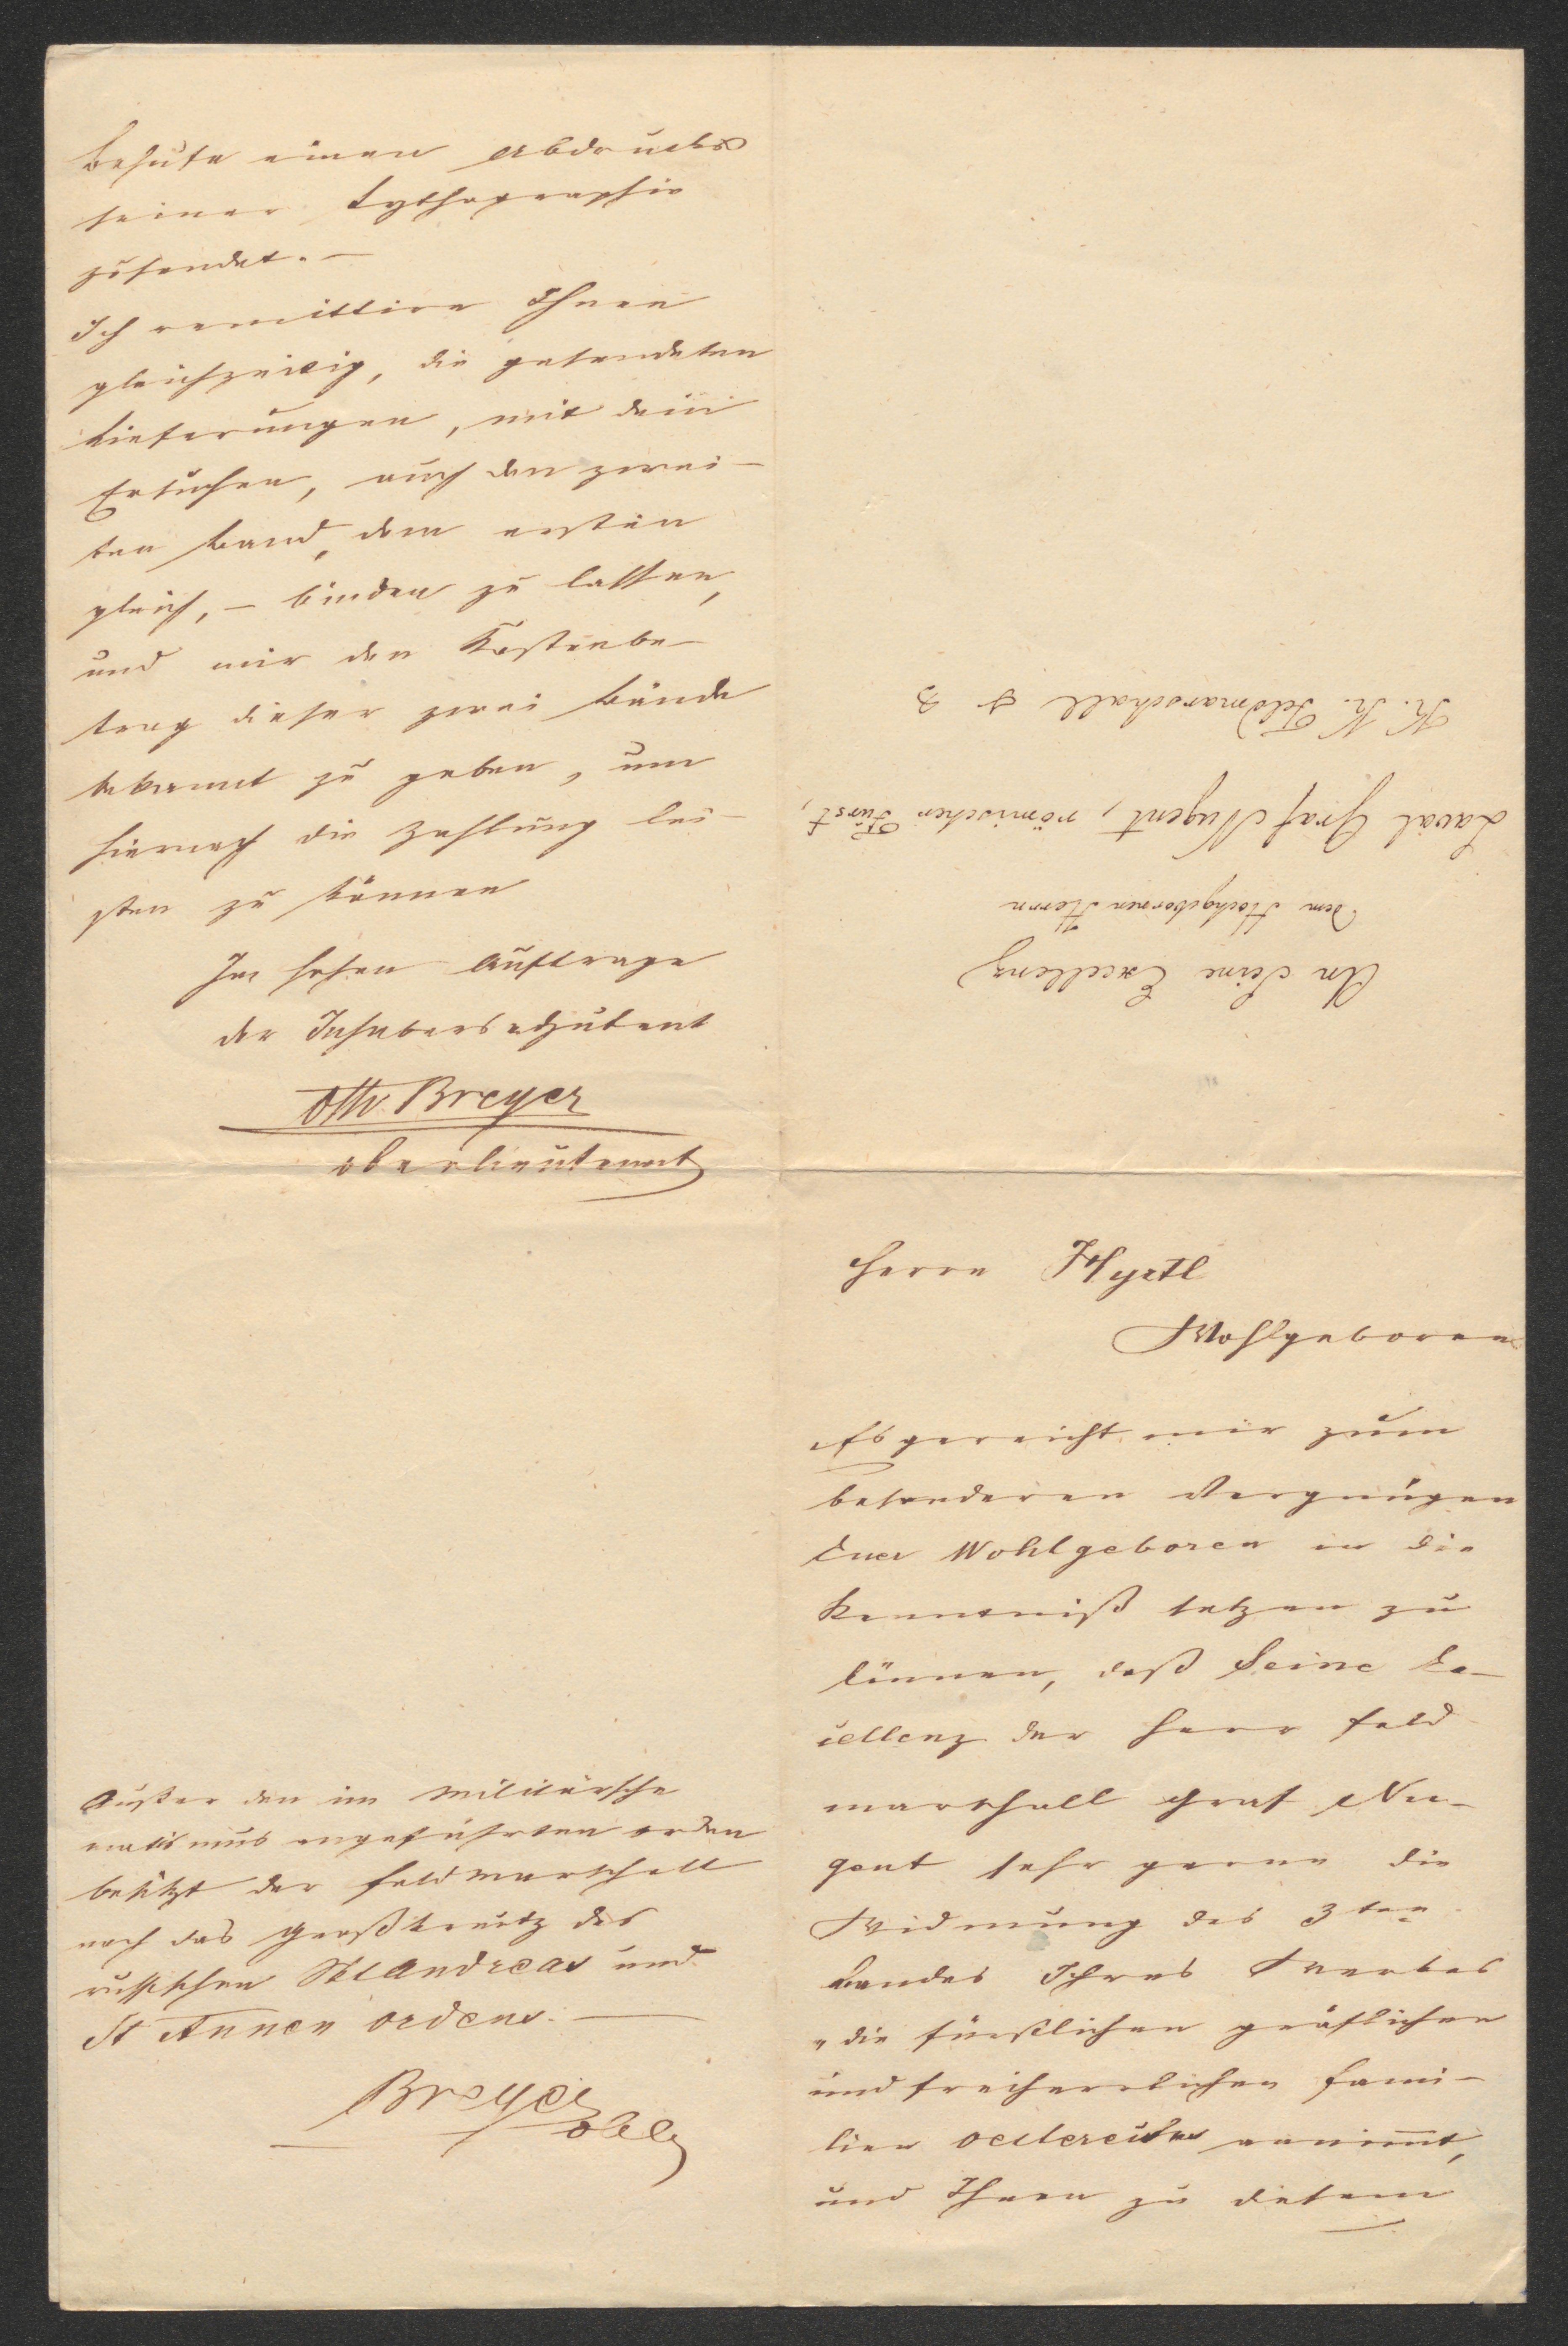 Herrn Hyrtl
Wohlgeboren
Es gereicht mir zum
besonderen Vergnügen
Euer Wohlgeboren in die
Kenntniß setzen zu
können, daß Seine Ex-
cellenz der Herr Feld
marschall Graf Nu-
gent sehr gerne die
Widmung des 3ten
Bandes Ihres Werkes
„die fürstlichen gräflichen
und freiherrlichen Fami-
lien Oesterreichs annimt,
und Ihnen zu diesem
Behufe einen Abdruck
seiner Lythographie
zusendet.—
Ich remittire Ihnen
gleichzeitig, die gesendeten
Lieferungen, mit dem
Ersuchen, auch den zwei-
ten Band, dem ersten
gleich, – binden zu lassen,
und mir den Kostenbe-
trag dieser zwei Bände
bekannt zu geben, um
hiernach die Zahlung lei-
sten zu können
Im hohen Auftrage
der Inhabersadjutant
Otto Breyer
Oberlieutenant
Außer den im Militärsche
matismus angeführten Orden
besitzt der Feldmarschall
noch das Großkreutz des
russischen St Andreas und
St Annen Ordens.—
Breyer
Oblt
An Seine Excellenz
dem Hochgebornen Herrn
Laval Graf Nugent, römischer Fürst,
K. K. Feldmarschall